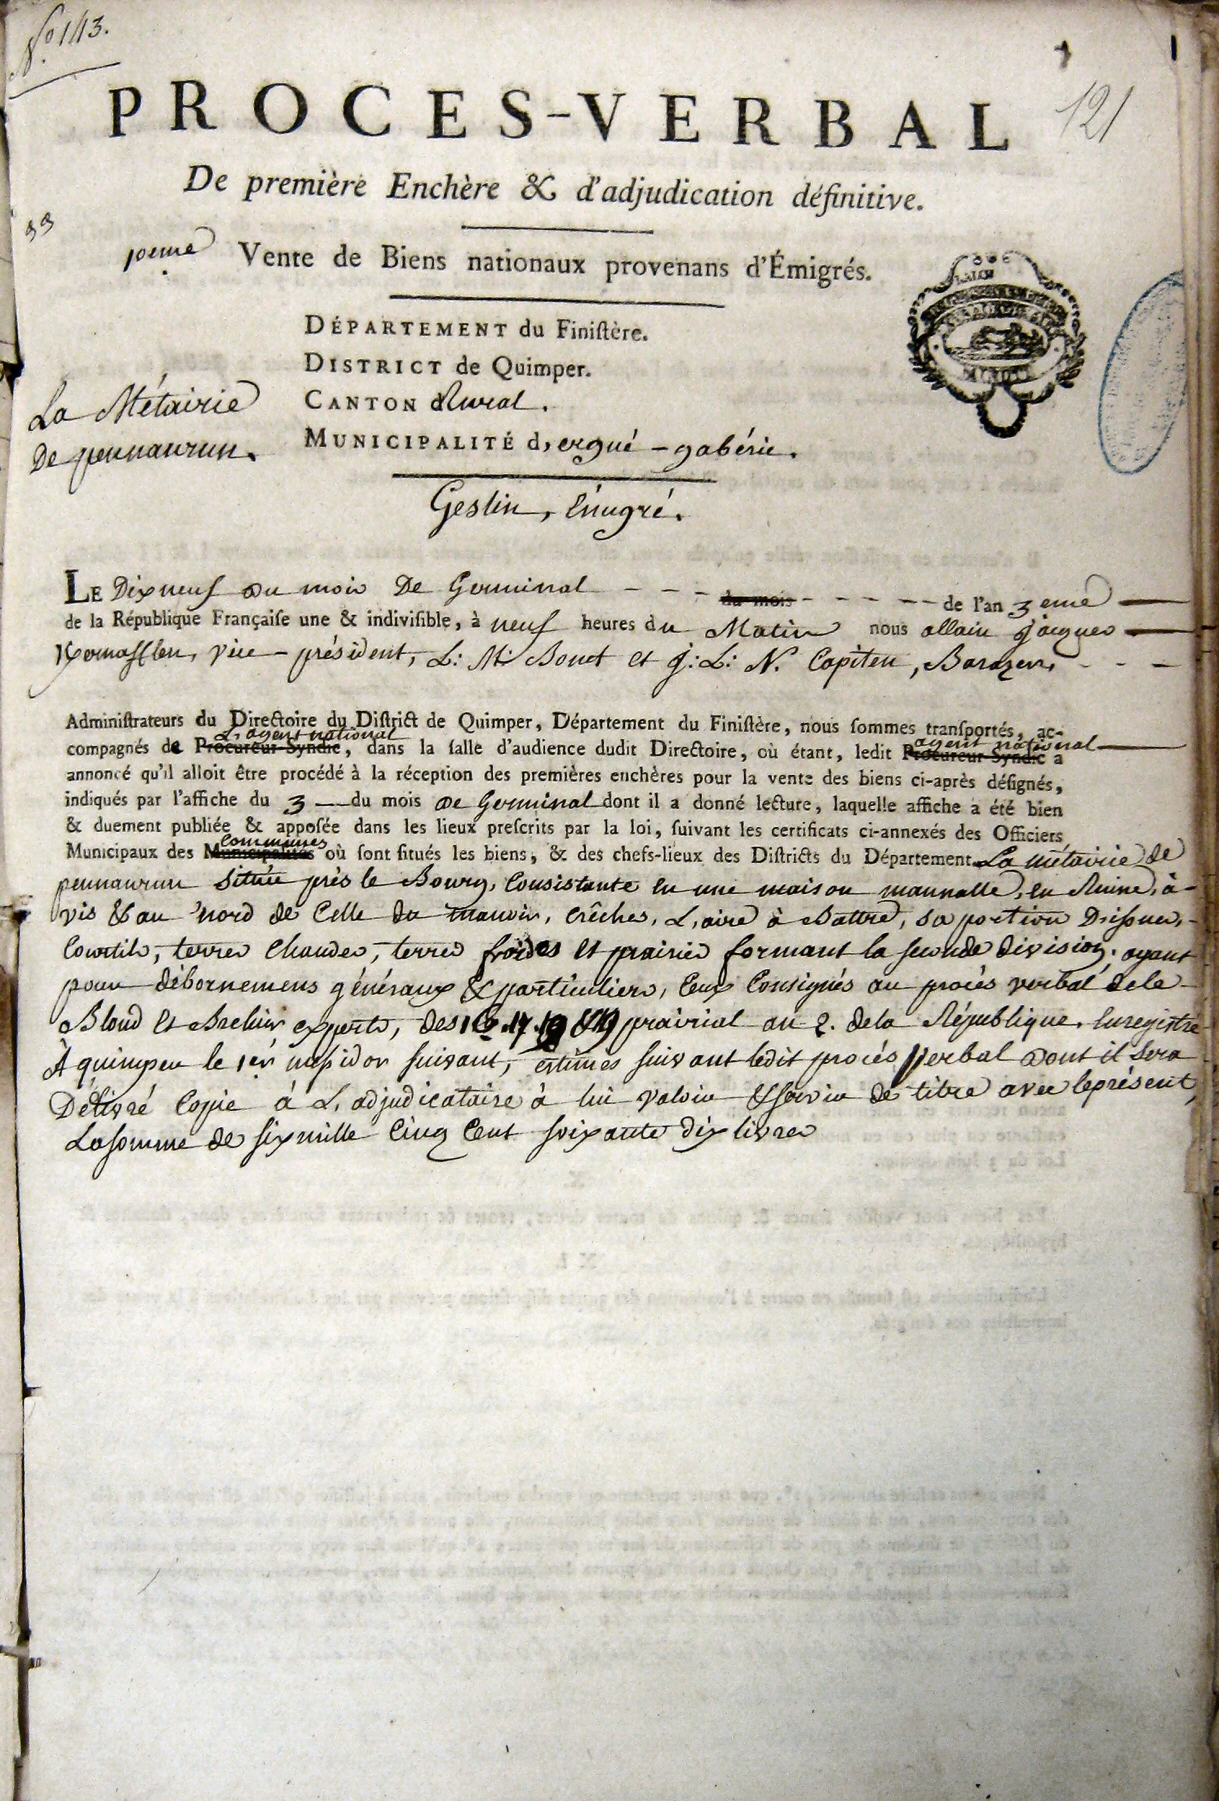 N.º 143.
121
PROCES-VERBAL
De première Enchère & d'adjudication définitive.
33
10eme Vente de Biens nationaux provenans d'Émigrés.
DÉPARTEMENT du Finiſtère.
DISTRICT de Quimper.
CANTON Rural.
MUNICIPALITÉ d, ergué-gabéric.
La Métairie
De pennanrun.
Gestin, Émigré.
LE Dixneuf du mois De Germinal - - - du mois - - - - - de l'an 3eme
de la République Françaiſe une & indiviſible, à neuf heures du Matin nous allain Jacques
Kernafflen, vice-président, L: M: Bonet et J: L: N. Capiten, Barazer, - - -
Adminiſtrateurs du Directoire du Diſtrict de Quimper, Département du Finiſtère, nous ſommes tranſportés, ac-
L, agent national agent national
compagnés de Procureur-Syndic, dans la ſalle d'audience dudit Directoire, où étant, ledit Procureur-Syndic a
annoncé qu'il alloit être procédé à la réception des premières enchères pour la vente des biens ci-après déſignés,
indiqués par l'affiche du 3 du mois De Germinal dont il a donné lecture, laquelle affiche a été bien
& duement publiée & appoſée dans les lieux preſcrits par la loi, ſuivant les certificats ci-annexés des Officiers
communes
Municipaux des Municipalités où ſont ſitués les biens, & des chefs-lieux des Diſtricts du Département. La métairie de
pennanrun Située près le Bourg, Consistante en une maison mannalle, en Ruine, à-
vis & au nord de Celle du manoir, crêches, L, aire à Battre, sa portion D'issues,
Courtils, terres Chaudes, terres froides et prairies formant la seconde division, ayant
pour débornemens généraux & particuliers, Ceux Consignés au procés verbal de le
Bloud et Brelivr experts, des 16. 17. 18 & 19 prairial an 2. de la République, Enregistré
À quimper le 1er messidor suivant, estimés suivant ledit procés verbal dont il sera
Délivré Copie à L, adjudicataire à lui valoir & servir de titre avec le présent,
La somme de six mille Cinq Cent soixante dix livres